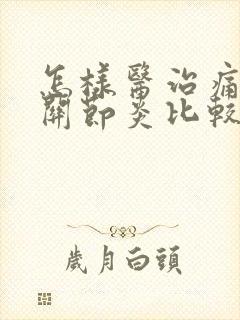 怎樣醫治痛
關節炎比較
歲月白頭